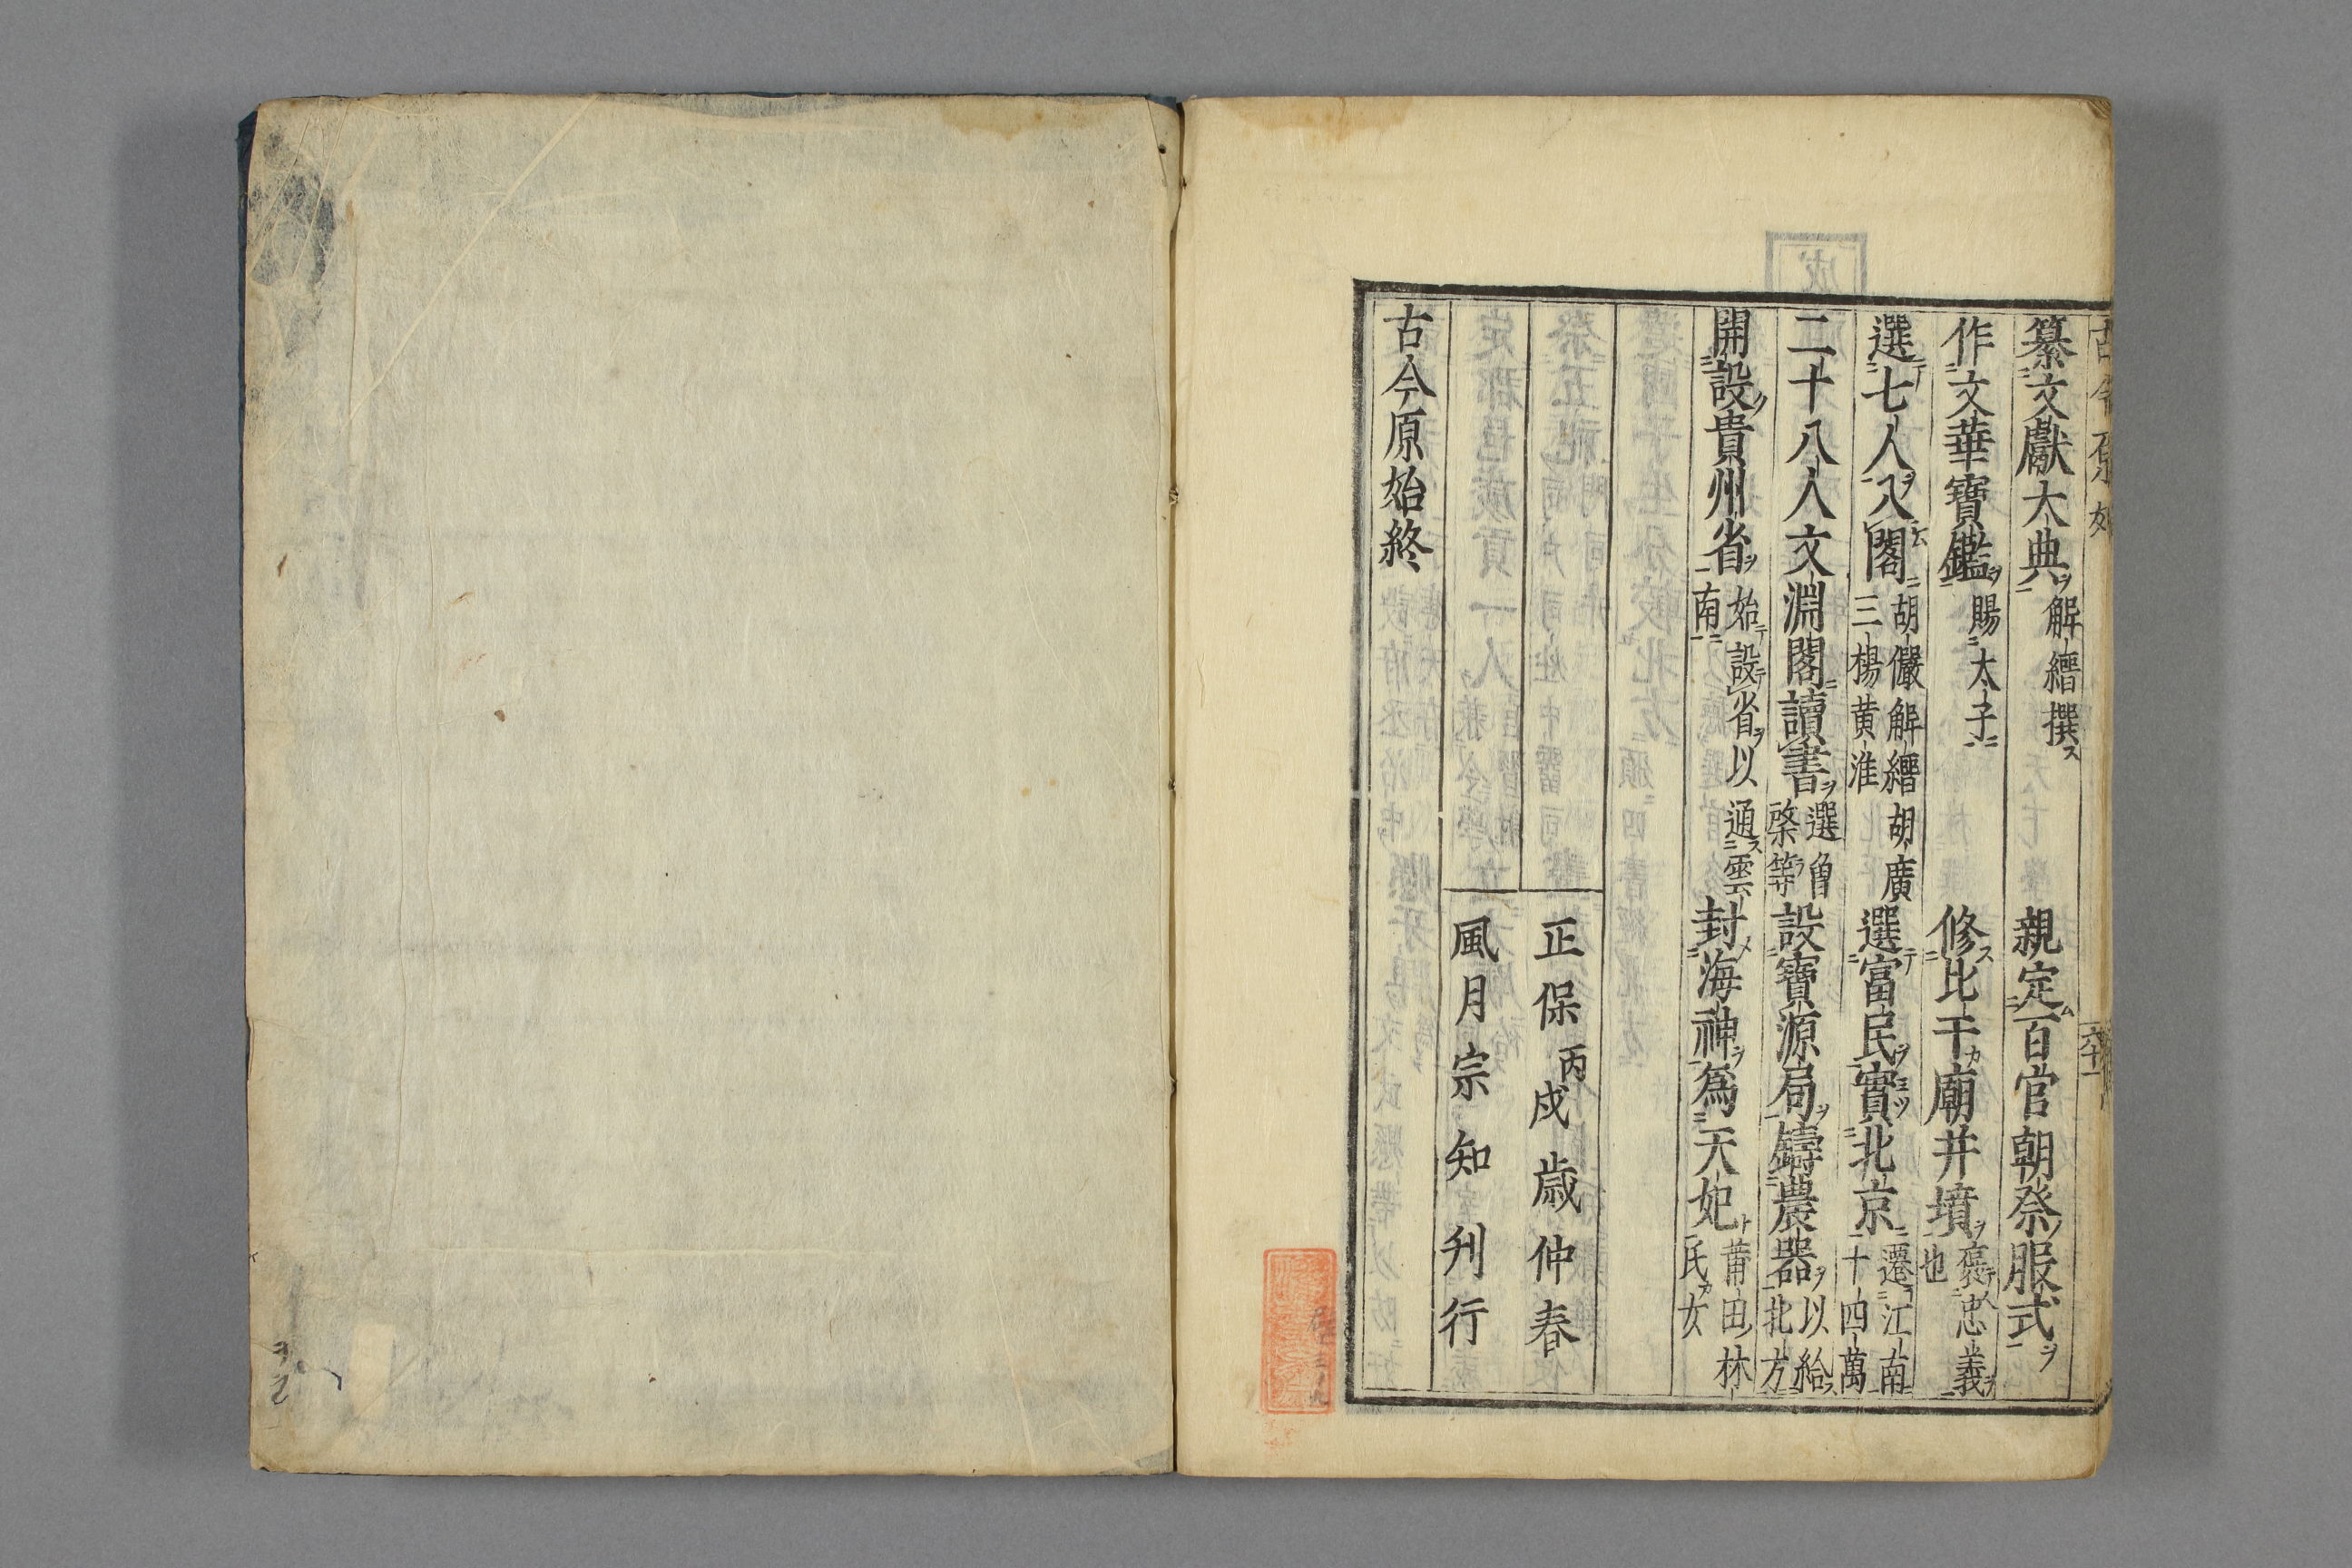 纂文獻大典ヲ 解縉撰ス 親定ム百官朝祭ノ服式ヲ
作文華寶鑑ヲ 賜太子ニ 修ス比干カ廟并墳ヲ 褒忠義ヲ也
選テ七人ヲ入閣ニ 胡儼解縉胡廣三楊黄淮 選テ富民ヲ實ミツ北京ニ 遷江南十四萬
二十八人文淵閣ニ讀書ヲ 選曾棨等ヲ 設寶源局ヲ鑄農器ヲ 以給ス北方
開設ノ貴州省ヲ 始テ設テ省ヲ以通ス雲南ニ 封メ海神ヲ爲天妃ト 莆田ノ林氏カ女
正保丙戌歳仲春
風月宗知刋行
古今原始終
古今原始
六十一